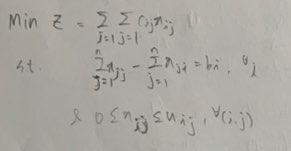 Min Z = Σ_{j=1} Σ_{j=1} c_{ij} x_{ij}
s.t. Σ_{j=1}^{n} x_{ij} - Σ_{j=1}^{n} x_{ji} = b_i, ∀_i
& 0 ≤ x_{ij} ≤ u_{ij}, ∀(i,j)